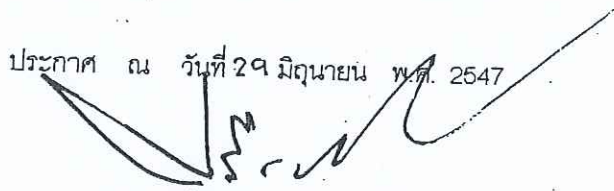 ประกาศ ณ วันที่ 29 มิถุนายน พ.ศ. 2547